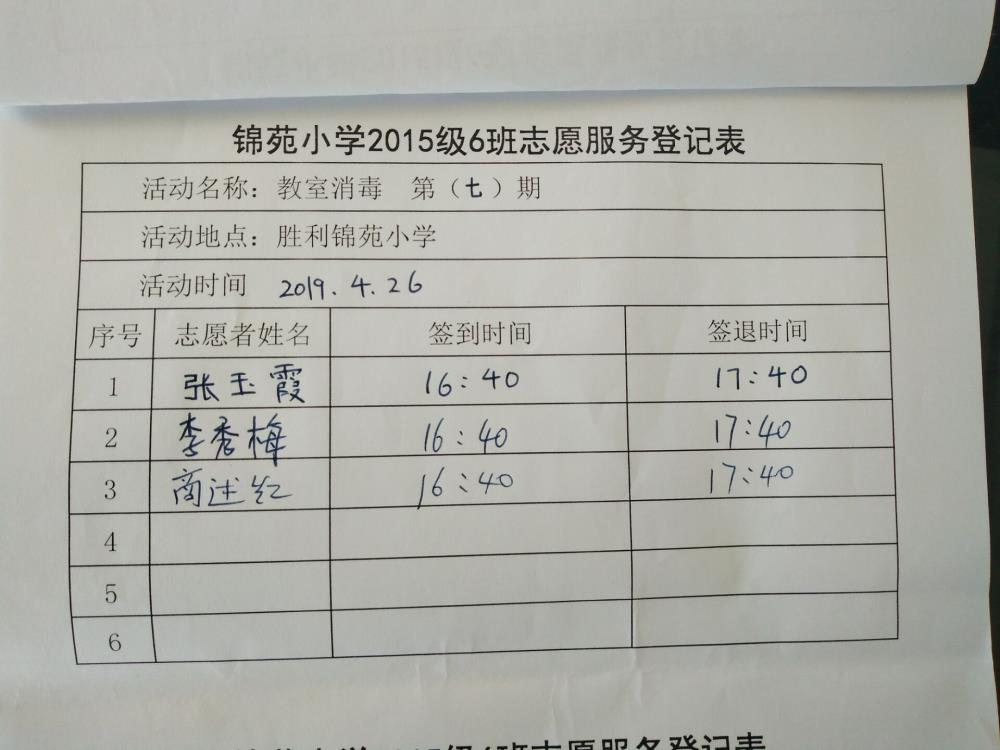 锦苑小学2015级6班志愿服务登记表
活动名称：教室消毒 第（七）期
活动地点：胜利锦苑小学
活动时间 2019.4.26
序号 志愿者姓名 签到时间 签退时间
1 张玉霞 16:40 17:40
2 李秀梅 16:40 17:40
3 商述红 16:40 17:40
4
5
6
锦苑小学2015级6班志愿服务登记表